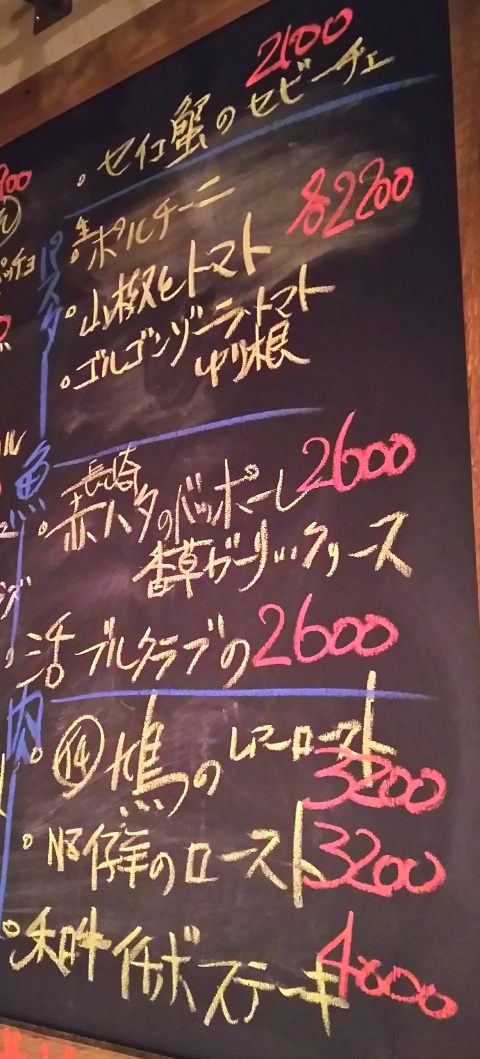 2100
セイコ蟹のセビーチェ
パスタ
生ポルチーニ
各2200
山椒とトマト
ゴルゴンゾーラ・トマト
ゆり根
魚
長崎
赤ハタのバッポーレ 2600
香草ガーリックソース
活ブルクラブの 2600
肉
仔鳩のレアロースト
3200
NZ仔羊のロースト 3200
和牛イチボステーキ 4000